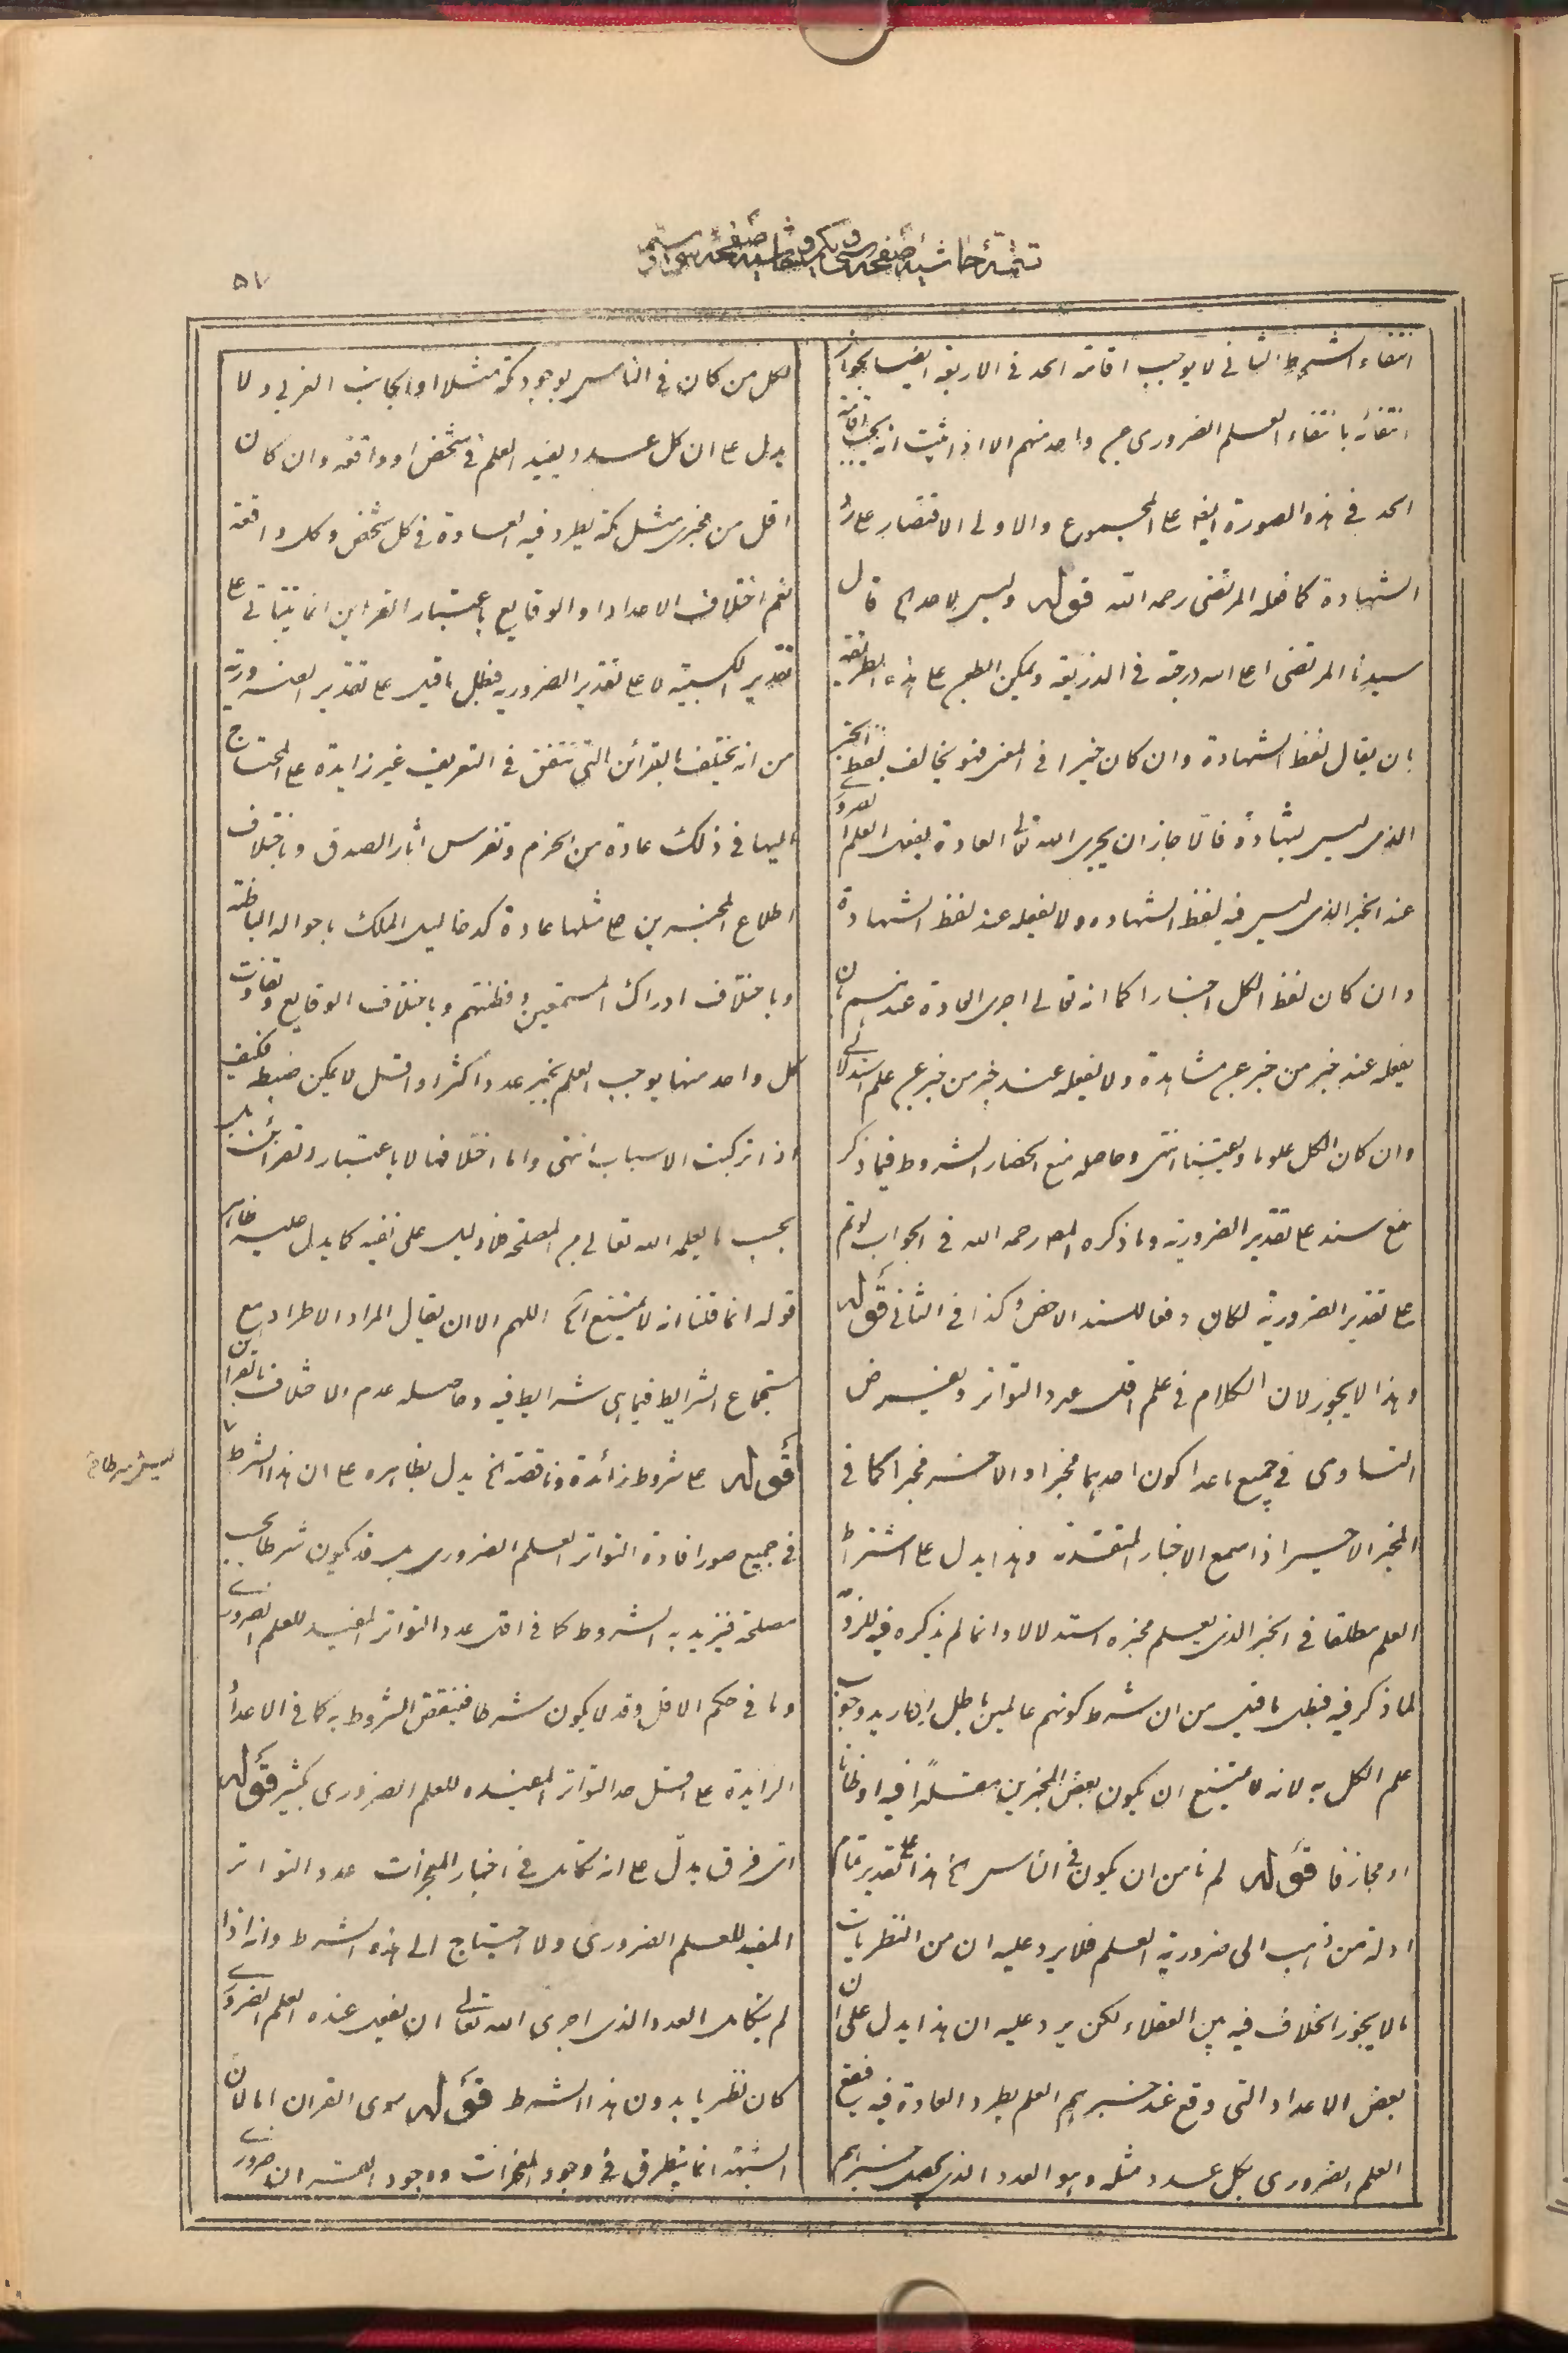 تتمهٔ حاشیهٔ صفحه
۵۷
انتفاء الشرط الثانى لا يوجب اقامة الحد فى الاربعة ايضا لجواز
انتفائه بانتفاء العلم الضرورى عن واحد منهم الا اذا ثبت انه يجب اقامة
الحد فى هذه الصورة ايضا على المجموع والاولى الاقتصار على رد
الشهادة كما فعله المرتضى رحمه الله قوله وليس لاحد الخ قال
سيدنا المرتضى اعلى الله درجته فى الذريعة ويمكن الطعن على هذه الطريقة
بان يقال لفظ الشهادة وان كان خبرا فى المعنى فهو يخالف لفظ الخبر
الذى ليس بشهادة فالا جاز ان يجرى الله تعالى العادة بفعل العلم الضرورى
عند الخبر الذى ليس فيه لفظ الشهاده ولا يفعله عند لفظ الشهادة
وان كان لفظ الكل اخبارا كما انه تعالى اجرى العادة عندهم بان
يفعله عند خبر من خبر عن مشاهدة ولا يفعله عند خبر من خبر عن علم استدلالى
وان كان الكل علوما ويقينا انتهى وحاصله منع انحصار الشروط فيما ذكر
مع سند على تقدير الضرورية وما ذكره المص رحمه الله فى الجواب لو تم
على تقدير الضرورية لكان دفعا للسند الاخص وكذا فى الثانى قوله
وهذا لا يجوز لان الكلام فى علم اقل عدد التواتر ونفرض
التساوى فى جميع ما عدا كون احدهما مخبرا والاخر مخبرا كما فى
المخبر الاخير اذا سمع الاخبار المتقدمة وهذا يدل على اشتراط
العلم مطلقا فى الخبر الذى يعلم مخبره استدلالا وانما لم يذكره فيه للزوم
لما ذكر فيه فبطل ما قيل من ان شرط كونهم عالمين باطل ان اريد وجوب
علم الكل به لانه لا يمتنع ان يكون بعض المخبرين مقلدا فيه او ظانا
او مجازفا قوله لم نامن ان يكون فى الناس الخ هذا على تقدير تمام
ادلة من ذهب الى ضرورية العلم فلا يرد عليه ان من النظريات
ما لا يجوز الخلاف فيه بين العقلاء لكن يرد عليه ان هذا يدل على ان
بعض الاعداد التى وقع عند خبرهم العلم يطرد العادة فيه فيقع
العلم الضرورى بكل عدد مثله وهو العدد الذى يحصل بخبرهم
لكل من كان فى الناس بوجود مكة مثلا او الجانب الغربى ولا
يدل على ان كل عدد يفيد العلم فى شخص او واقعة وان كان
اقل من مخبرى مثل مكة يطرد فيه العادة فى كل شخص وكل واقعة
نعم اختلاف الاعداد والوقايع باعتبار القراين انما يتاتى على
تقدير الكسبية لا على تقدير الضرورية فبطل ما قيل على تقدير الضرورية
من انه يختلف بالقرائن التى تتفق فى التعريف غير زايدة على المحتاج
اليها فى ذلك عادة من الحزم وتفرس اثار الصدق وباختلاف
اطلاع المخبرين على مثلها عادة كدخاليل الملك باحواله الباطنة
وباختلاف ادراك المستمعين وفطنتهم وباختلاف الوقايع وتفاوت
كل واحد منها يوجب العلم بخبر عدد اكثر او اقل لا يمكن ضبطه فكيف
اذا تركبت الاسباب انتهى واما اختلافها لا باعتبار القرائن بل
بحسب ما يعلمه الله تعالى من المصلحة فلا دليل على نفيه كما يدل عليه ظاهر
قوله انما قلنا انه لا يمتنع الخ اللهم الا ان يقال المراد الاطراد مع
استجماع الشرايط فيما هى شرايط فيه وحاصله عدم الاختلاف بالقراين
قوله على شروط زائدة وناقصة الخ يدل بظاهره على ان هذا الشرط لا
فى جميع صور افادة التواتر العلم الضرورى بل قد يكون شرطا بحسب
مصلحة فيزيد به الشروط كما فى اقل عدد التواتر المفيد للعلم الضرورى
وما فى حكم الاقل وقد لا يكون شرطا فينقص الشروط به كما فى الاعداد
الزايدة على اقل حد التواتر المفيده للعلم الضرورى بكثير قوله
اى فرق يدل على انه تكامل فى اخبار المعجزات عدد التواتر
المفيد للعلم الضرورى ولا احتياج الى هذه الشرط وانه اذا
لم يتكامل العدد الذى اجرى الله تعالى ان يفعل عنده العلم الضرورى
كان نظريا بدون هذا الشرط قوله سوى القران اما لان
الشبهة انما يتطرق فى وجود المعجزات ووجود القران ضرورى